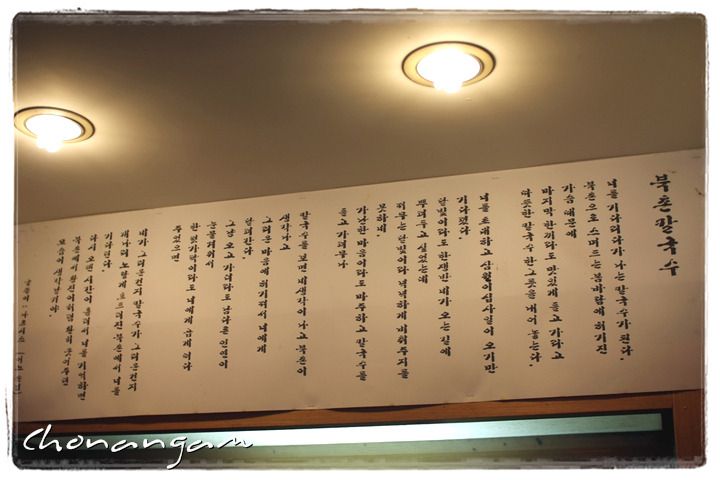 북촌칼국수
너를 기다리다가 나는 칼국수가 된다.
북촌으로 스며드는 봄바람에 허기진
가슴 때문에
마지막 한끼라도 맛있게 들고 가라고
따뜻한 칼국수 한그릇을 내어 놓는다.
너를 초대하고 삼월이십사일이 오기만
기다렸다.
달빛이라도 한쟁반 네가 오는 길에
뿌려두고 싶었는데
저무는 달빛이라 넉넉하게 비춰주지를
못하네.
가난한 마음이라도 마주하고 칼국수를
들고 가려무나
칼국수를 보면 네생각이 나고 북촌이
생각나고
그리운 마음에 허기져서 너에게
달려간다.
그냥 오고 가더라도 남다른 인연이
눈물겨워서
한 젓가락이라도 너에게 남겨 더 다
주었으면
네가 그리운건지 칼국수가 그리운건지
개나리 노랗게 흐드러진 북촌에서 너를
기다린다.
다시 오랜 시간이 흘러서 너를 기억하면
북촌에서 왕진이처럼 환히 웃어주던
모습이 생각나겠지.
Chonangam